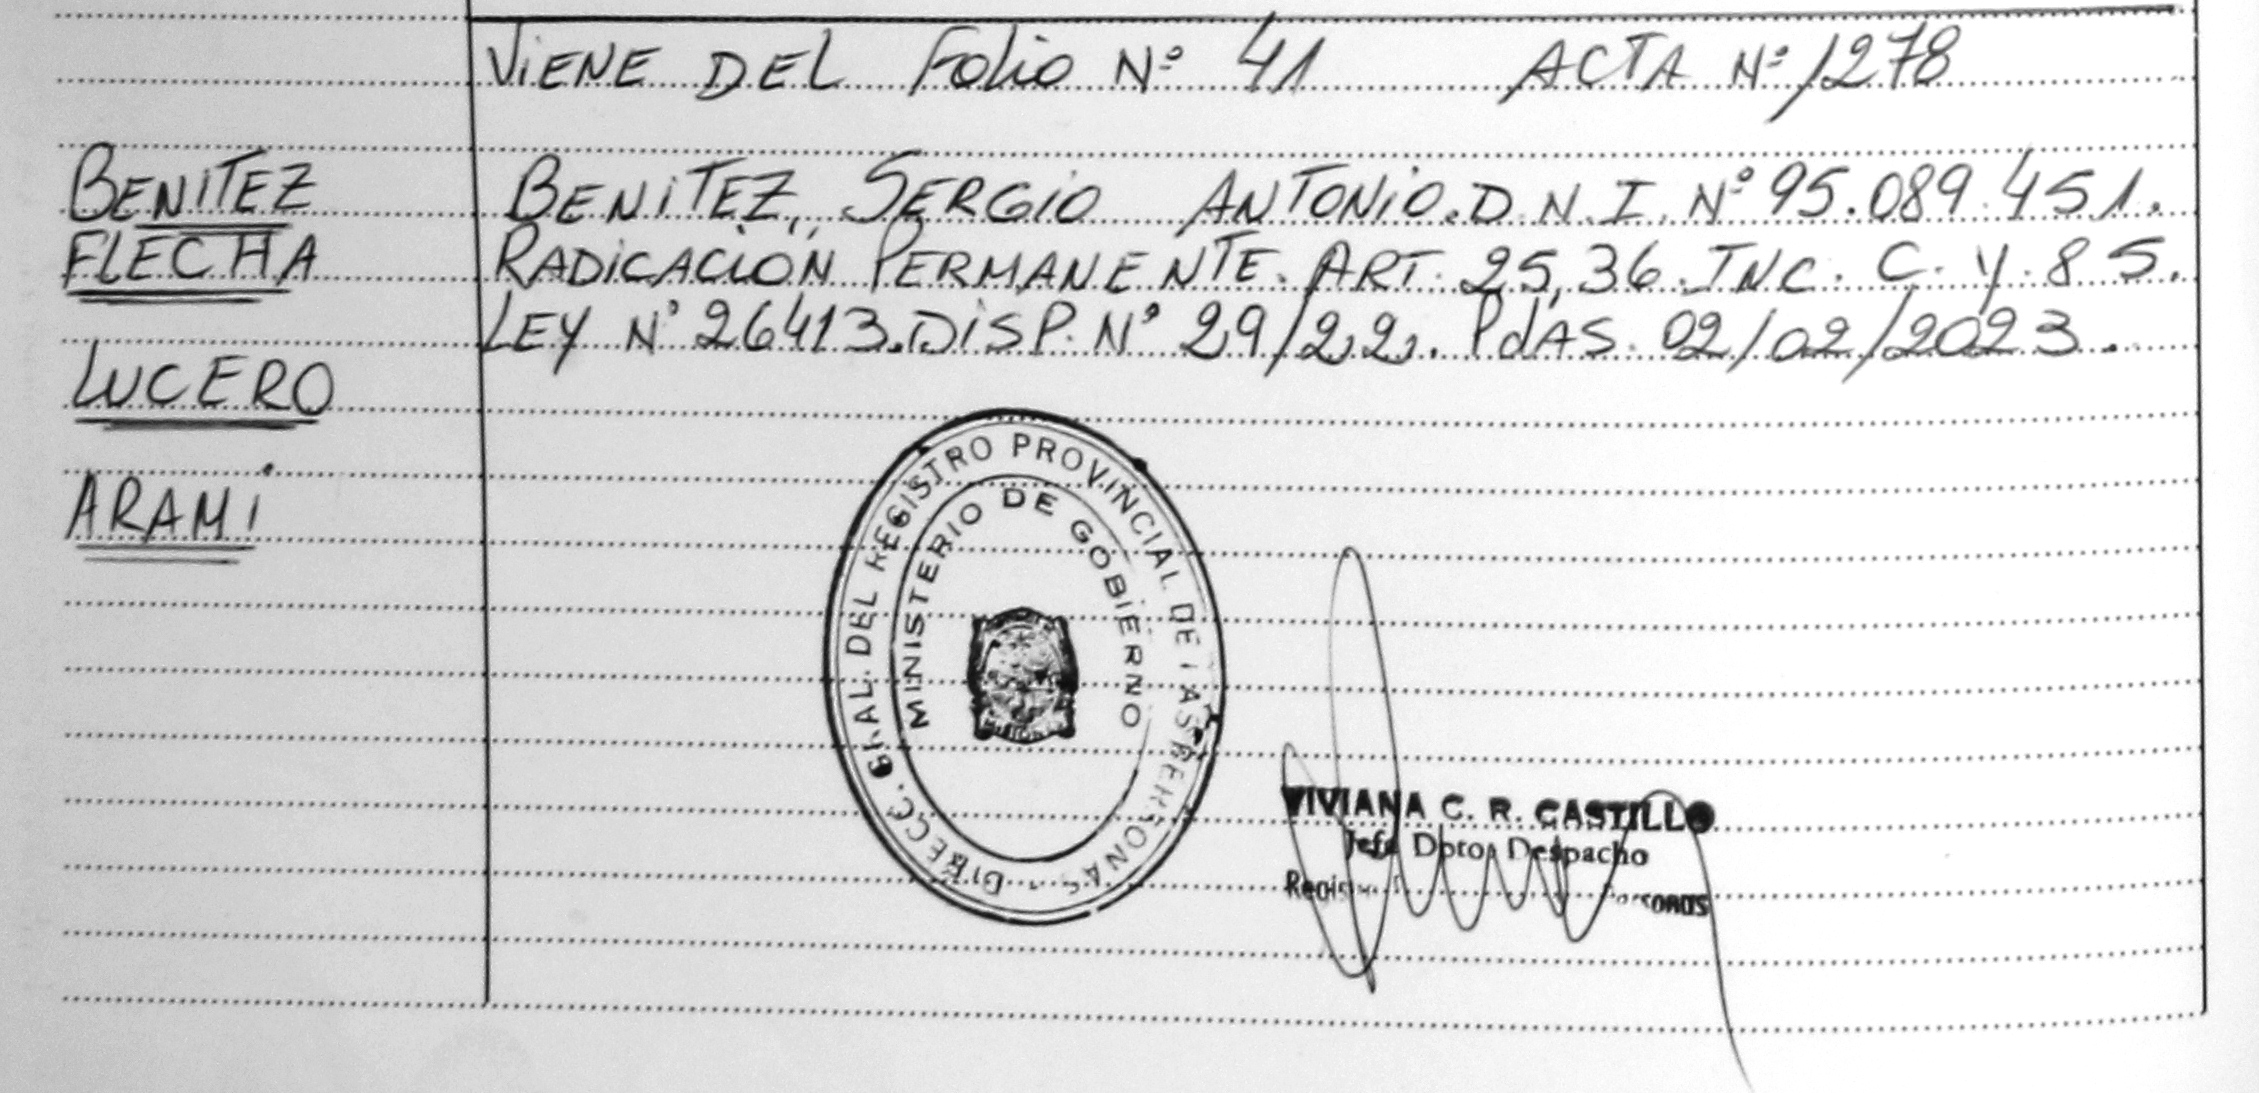 VIENE DEL FOLIO Nº 41 ACTA Nº 1278
BENITEZ
FLECHA
LUCERO
ARAMí
BENITEZ, SERGIO ANTONIO. D.N.I. Nº 95.089.451.
RADICACIÓN PERMANENTE. ART. 25, 36. INC. C. Y. 85.
LEY Nº 26413. DISP. Nº 29/22. PdAS. 02/02/2023.
DIRECC. GRAL. DEL REGISTRO PROVINCIAL DE LAS PERSONAS
MINISTERIO DE GOBIERNO
VIVIANA C. R. CASTILLO
Jefe Dpto. Despacho